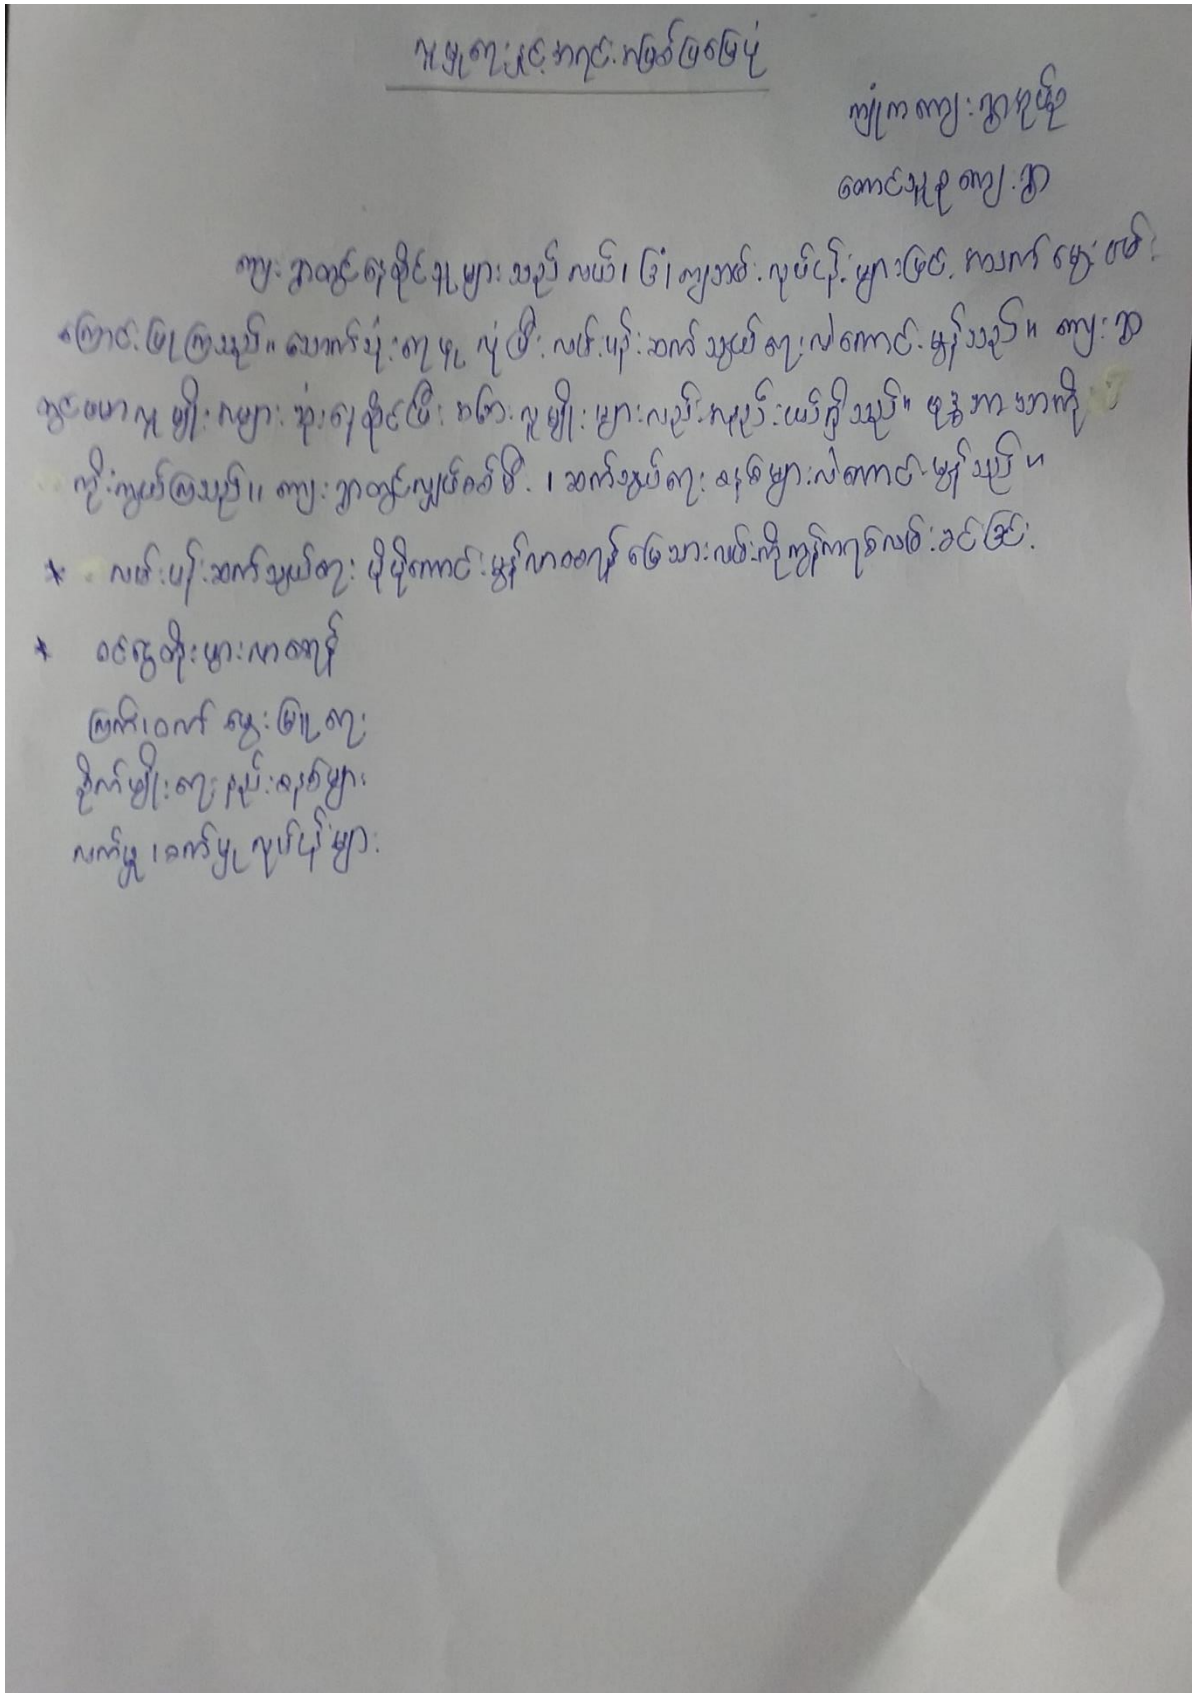 လူမှုရေးနှင့်အရင်းအမြစ်ပြမြေပုံ
ကျုံကကျေးရွာအုပ်စု
တောင်သူစုကျေးရွာ
ကျေးရွာတွင်နေထိုင်သူများသည် လယ်၊ ခြံ၊ ကျဘမ်းလုပ်ငန်းများဖြင့် အသက်မွေးဝမ်း
ကြောင်းပြုကြသည်။ သောက်သုံးရေမှု လုံပြီး လမ်းပန်းဆက်သွယ်ရေးလဲကောင်းမွန်သည်။ ကျေးရွာ
တွင်ဗမာလူမျိုးအများဆုံးနေထိုင်ပြီး အခြားလူမျိုးများလည်းအနည်းငယ်ရှိသည်။ ဗုဒ္ဓဘာသာကို
ကိုးကွယ်ကြသည်။ ကျေးရွာတွင်လျှပ်စစ်မီး၊ ဆက်သွယ်ရေးစနစ်များလဲကောင်းမွန်သည်။
* လမ်းပန်းဆက်သွယ်ရေး ပိုမိုကောင်းမွန်လာစေရန် မြေသားလမ်းကိုကွန်ကရစ်လမ်းခင်းခြင်း
* ဝင်ငွေတိုးပွားလာစေရန်
ကြက်၊ ဝက် မွေးမြူရေး
စိုက်ပျိုးရေးနည်းစနစ်များ
လက်မှု၊ စက်မှု လုပ်ငန်းများ